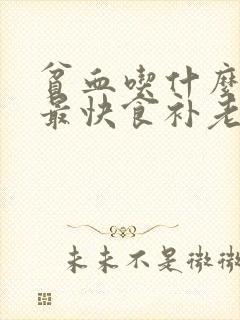 贫血喫什麽
最快食补老
未来不是微微